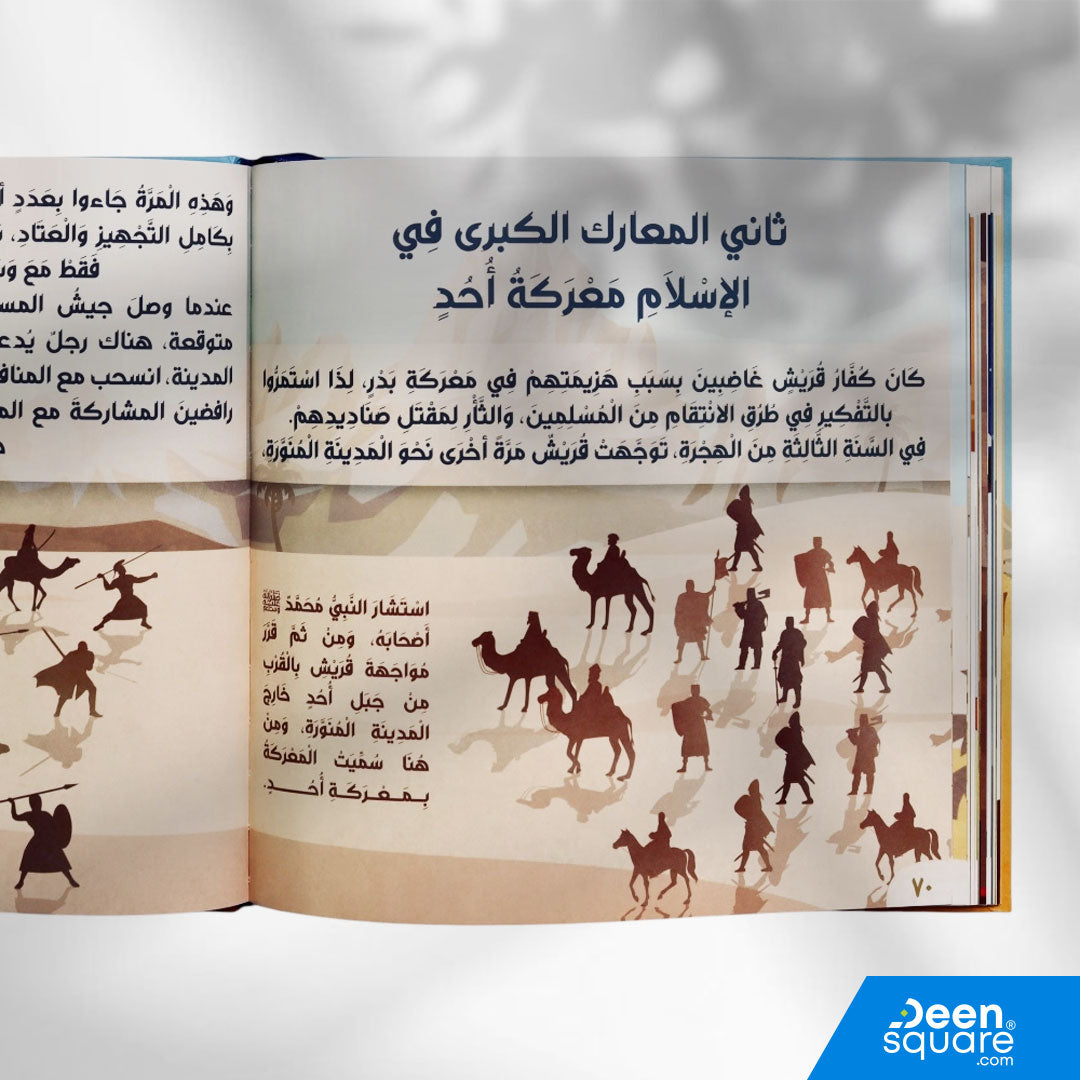 ثاني المعارك الكبرى فِي
الإسْلاَمِ مَعْرَكَةُ أُحُدٍ
كَانَ كُفَّارُ قُرَيْشٍ غَاضِبِينَ بِسَبَبِ هَزِيمَتِهِمْ فِي مَعْرَكَةِ بَدْرٍ، لِذَا اسْتَمَرُّوا
بالتَّفْكِيرِ فِي طُرُقِ الانْتِقَامِ مِنَ الْمُسْلِمِينَ، وَالثَّأْرِ لِمَقْتَلِ صَنَادِيدِهِمْ.
فِي السَّنَةِ الثَّالِثَةِ مِنَ الْهِجْرَةِ، تَوَجَّهَتْ قُرَيْشٌ مَرَّةً أخْرَى نَحْوَ الْمَدِينَةِ الْمُنَوَّرَةِ،
اسْتَشَارَ النَّبِيُّ مُحَمَّدٌ ﷺ
أَصْحَابَهُ، وَمِنْ ثَمَّ قَرَّرَ
مُوَاجَهَةَ قُرَيْشٍ بِالْقُرْبِ
مِنْ جَبَلِ أُحُدٍ خَارِجَ
الْمَدِينَةِ الْمُنَوَّرَةِ، وَمِنْ
هُنَا سُمِّيَتْ الْمَعْرَكَةُ
بِمَعْرَكَةِ أُحُدٍ.
٧٠
وَهَذِهِ الْمَرَّةُ جَاءوا بِعَدَدٍ
بِكَامِلِ التَّجْهِيزِ وَالْعَتَادِ،
فَقَطْ مَعَ
عندما وصلَ جيشُ
متوقعة، هناك رجلٌ
المدينة، انسحب مع
رافضينَ المشاركةَ مع
Deen®
square
.com